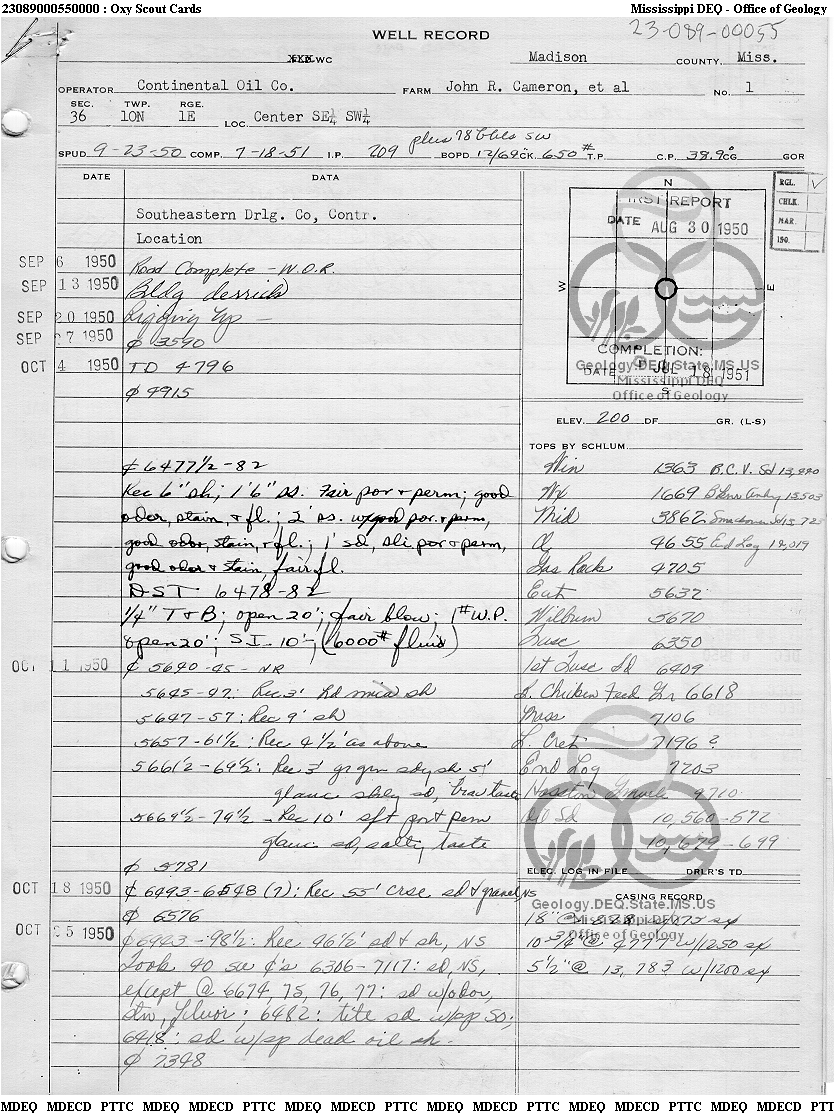 23089000550000 : Oxy Scout Cards Mississippi DEQ - Office of Geology
23-089-00055
WELL RECORD
XXX WC Madison COUNTY, Miss.
OPERATOR Continental Oil Co. FARM John R. Cameron, et al No. 1
SEC. TWP. RGE.
36 10N 1E LOC. Center SE¼ SW¼
plus 78 bbls SW
SPUD 9-23-50 COMP. 7-18-51 I.P. 209 BOPD 12/64 CK. 650# T.P. C.P. 38.9° CG GOR
DATE DATA
Southeastern Drlg. Co, Contr.
Location
SEP 6 1950 Road Complete - W.O.R.
SEP 13 1950 Bldg derrick
SEP 20 1950 Rigging Up -
SEP 27 1950 ₵ 3590
OCT 4 1950 TD 4796
₵ 4915
₵ 6477½-82
Rec 6" sh; 1'6" ss. Fair por + perm; good
odor, stain, + fl.; 2' ss. w/good por. + perm,
good odor, stain, + fl.; 1' sd, sli por + perm,
good odor + stain, fair fl.
DST 6478-82
¼" T + B; open 20'; fair blow; 1# W.P.
open 20'; S.I. 10'; (6000# fluid)
OCT 11 1950 ₵ 5640-45 - NR
5645-47: Rec 3' Rd mica sh
5647-57: Rec 9' sh
5657-61½: Rec 4½' as above
5661½-69½: Rec 3' gr grn sdy sh 5'
glauc shly sd, brav taste
5669½-79½ - Rec 10' sft por + perm
glauc sd, salty taste
₵ 5781
OCT 18 1950 ₵ 6493-6548 (?): Rec 55' crse sd + gravel, NS
₵ 6576
OCT 25 1950 ₵ 6443-98½: Rec 46½' sd + sh, NS
Took 40 sw ₵'s 6306-7117: sd, NS,
except @ 6674, 75, 76, 77: sd w/odor,
stn, fluor; 6482: tite sd w/sp SO;
6418: sd w/sp dead oil sh.
₵ 7348
RGL. ✓
CHLK.
MAR.
ISO.
N
FIRST REPORT
DATE AUG 30 1950
W E
COMPLETION:
DATE JUL 18 1951
S
Geology.DEQ.State.MS.US
Mississippi DEQ
Office of Geology
ELEV. 200 DF GR. (L-S)
TOPS BY SCHLUM.
Win 1363 B.C.V. Sd
Wx 1669
Mid 3862
4655 End Log
Gas Rock 4705
Eut 5632
Wilburn 5670
Tusc 6350
1st Tusc Sd 6409
L. Chicken Feed Gr 6618
Mass 7106
L. Cret 7196 ?
End Log 7203
Hosston 9710
Sd 10,560-572
10,679-699
ELEC. LOG IN FILE DRLR'S TD
CASING RECORD
Geology.DEQ.State.MS.US
Mississippi DEQ
Office of Geology
18" @ sx
10-¾ @: 4777 w/1250 sx
5½" @ 13,783 w/1200 sx
MDEQ MDECD PTTC MDEQ MDECD PTTC MDEQ MDECD PTTC MDEQ MDECD PTTC MDEQ MDECD PTTC MDEQ MDECD PTT